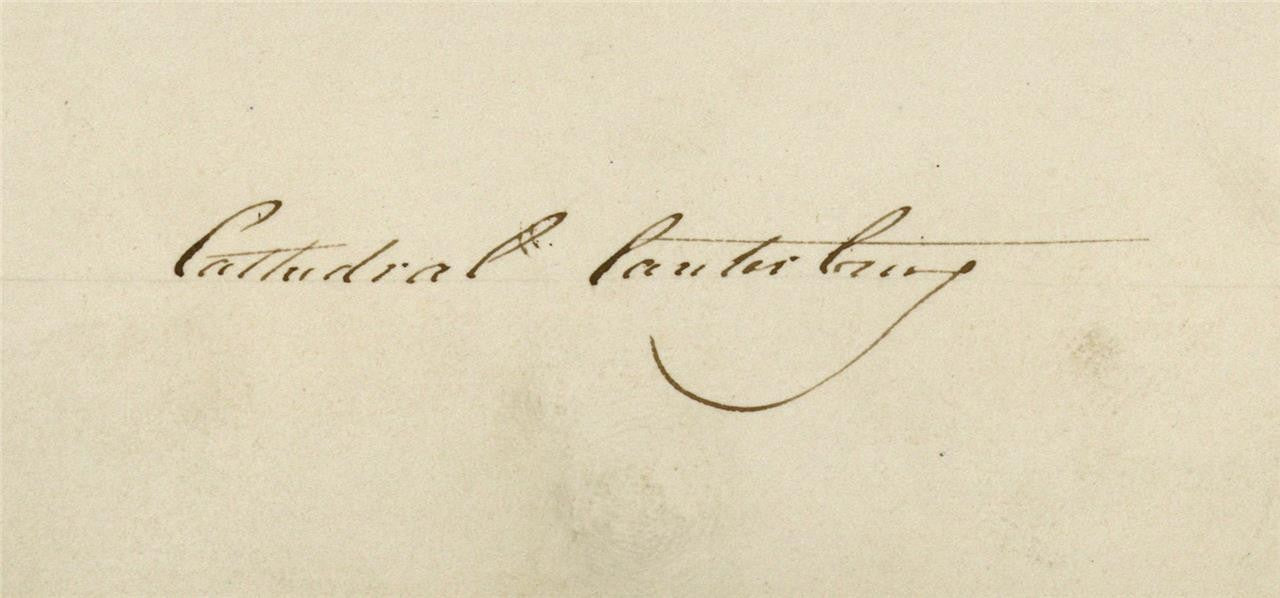 Cathedral Canterbury